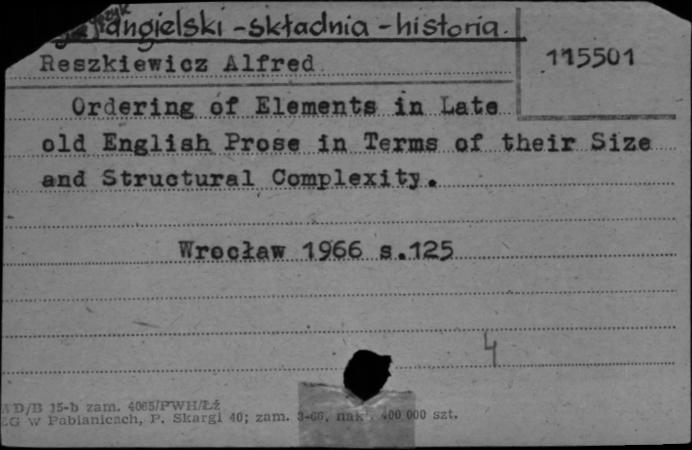 angielski - składnia - historia.
Reszkiewicz Alfred
115501
Ordering of Elements in Late
old English Prose in Terms of their Size
and Structural Complexity.
Wrocław 1966 s.125
4
D/B 15-b zam. 4065/PWH/Łż
ZG w Pabianicach, P. Skargi 40; zam. 3-66, nakł. 400 000 szt.